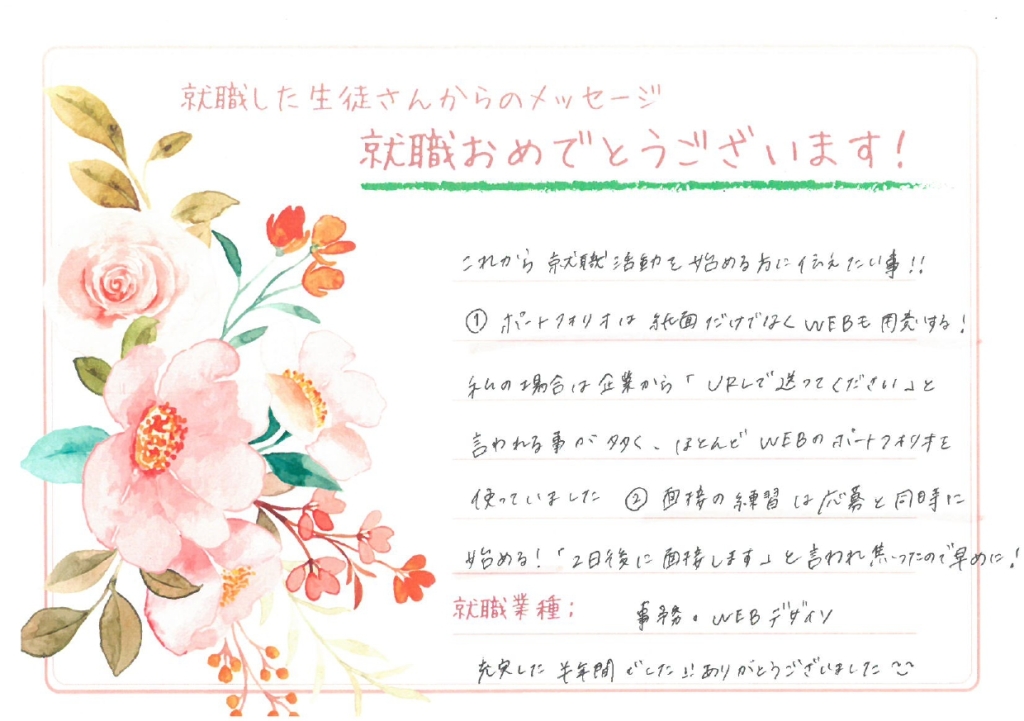 就職した生徒さんからのメッセージ
就職おめでとうございます!
これから就職活動を始める方に伝えたい事!!
① ポートフォリオは紙面だけではくWEBも用意する!
私の場合は企業から「URLで送ってください」と
言われる事が多く、ほとんどWEBのポートフォリオを
使っていました ② 面接の練習は応募と同時に
始める!「2日後に面接します」と言われ焦ったので早めに!
就職業種; 事務・WEBデザイン
充実した半年間でした!!ありがとうございました〜〜